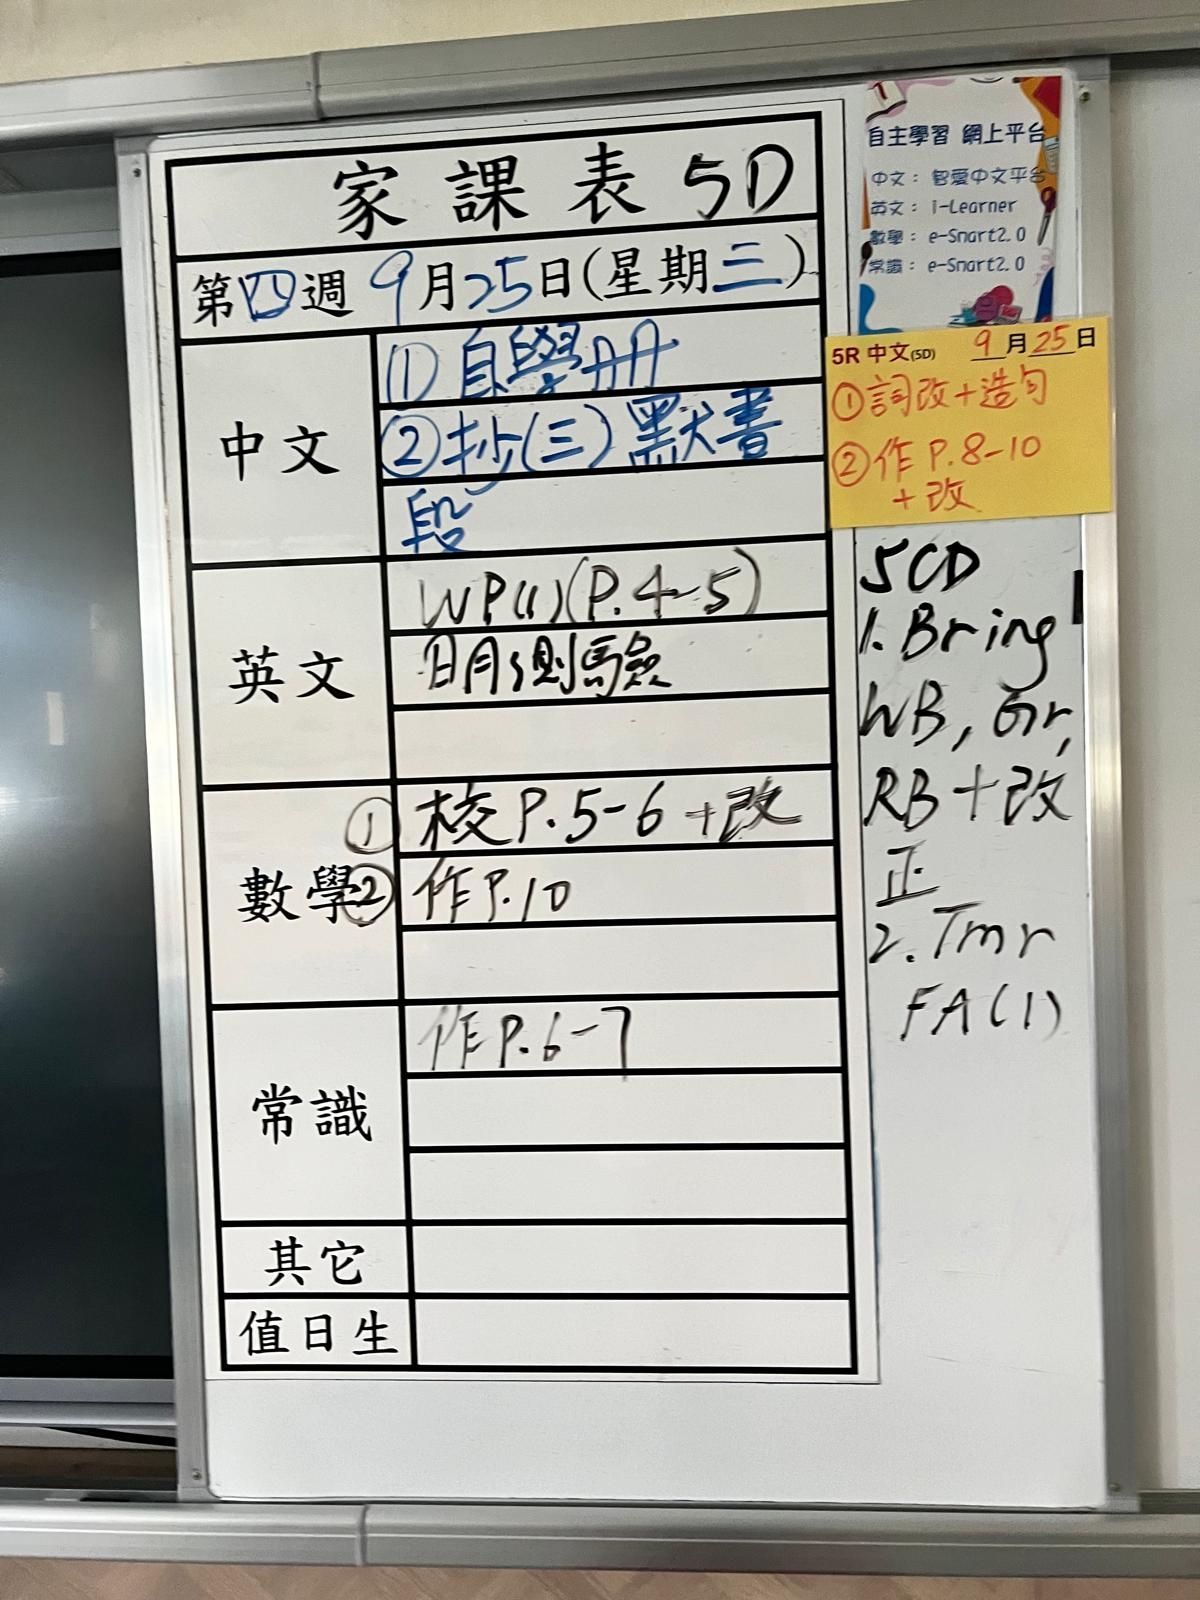 家課表 5D
第四週 9月25日(星期三)
中文
① 自學冊
② 抄(三)默書
段
英文
WP(1)(P.4-5)
明測驗
數學
① 校P.5-6 +改
② 作P.10
常識
作P.6-7
其它
值日生
自主學習 網上平台
中文： 智愛中文平台
英文： i-Learner
數學： e-Smart2.0
常識： e-Smart2.0
5R 中文(5D) 9月25日
①詞改+造句
②作 P.8-10
+改
5CD
1. Bring
WB, Gr,
RB+改
正
2. Tmr
FA(1)